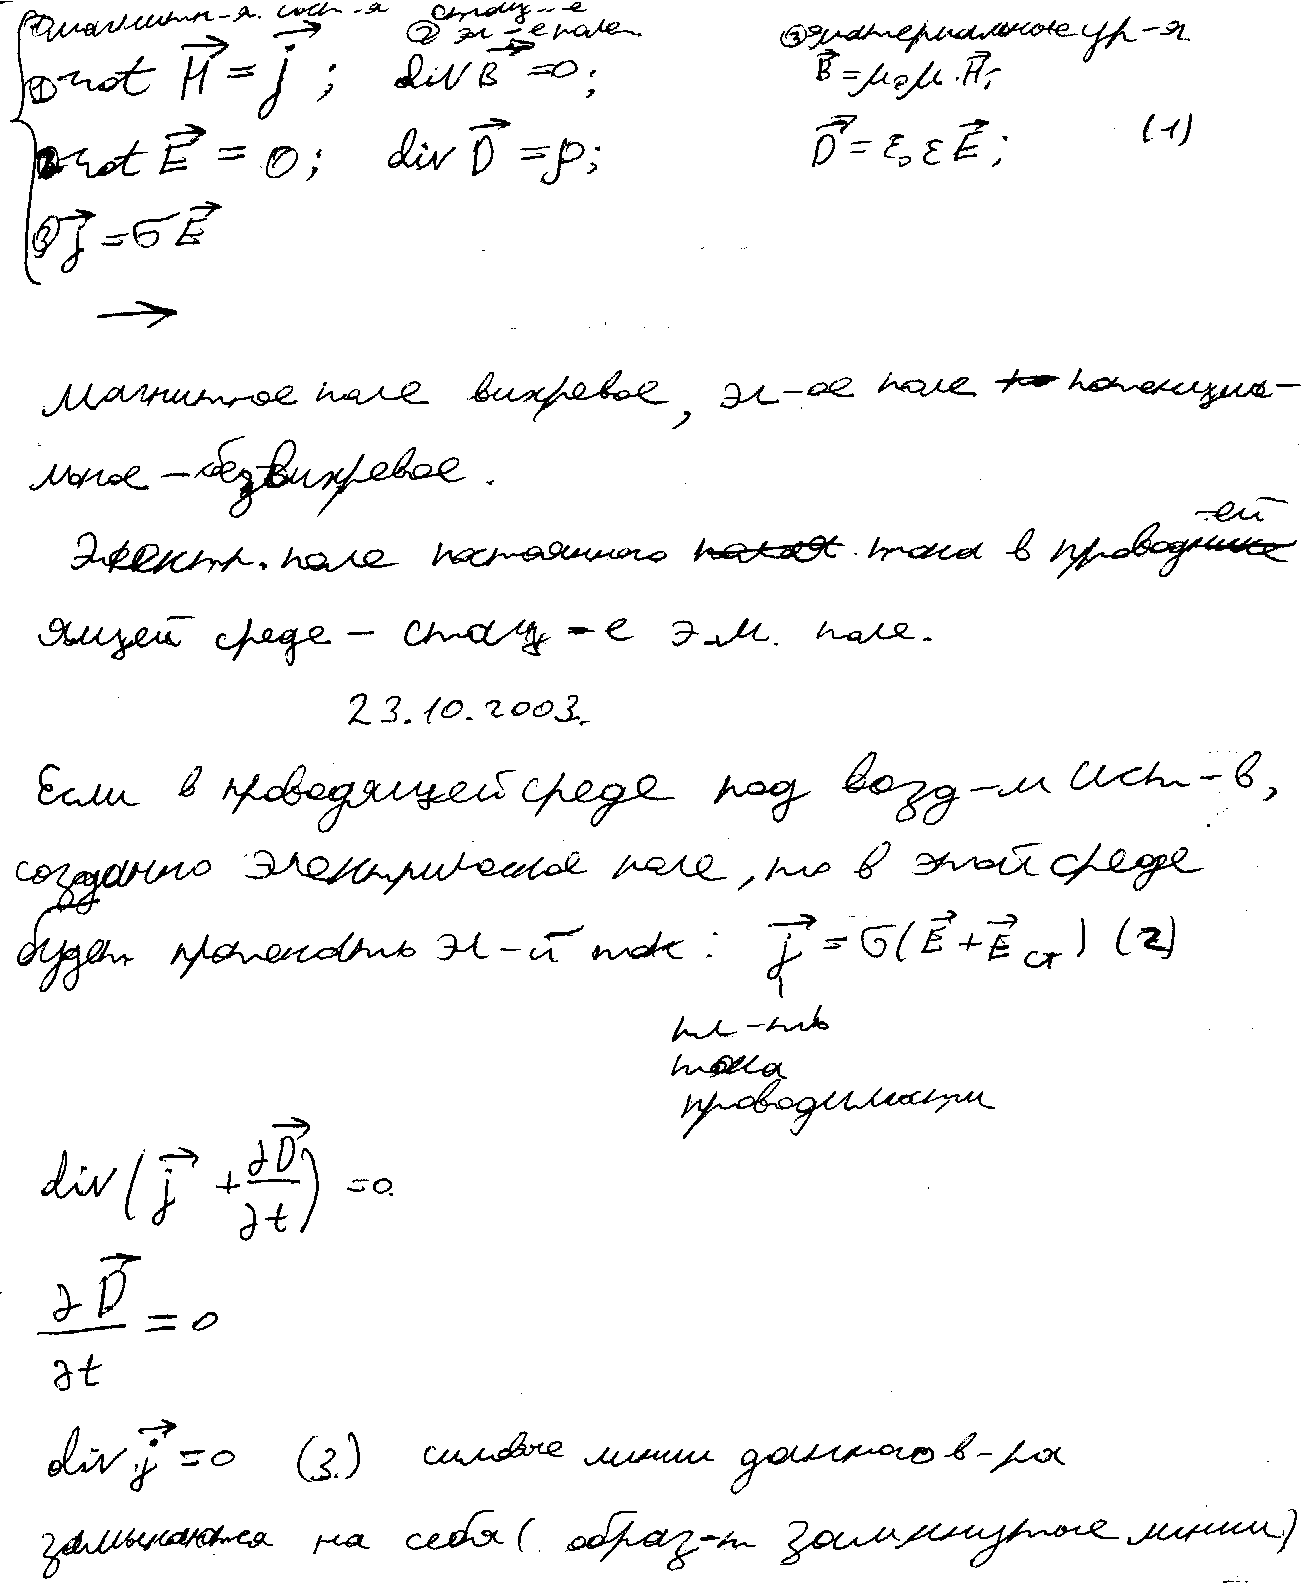 ① магнитн-я. сост-я стац-е ② эл-е поле ③ материальное ур-я
① rot H⃗ = j⃗ ; div B⃗ = 0; B⃗ = μ₀μ·H⃗;
2 rot E⃗ = 0; div D⃗ = ρ; D⃗ = ε₀εE⃗; (1)
③ j⃗ = σE⃗
→
Магнитное поле вихревое, эл-ое поле потенциа-
льное – безвихревое.
Электр. поле постоянного тока в провод-ей
ящей среде – стац-е э.м. поле.
23.10.2003.
Если в проводящей среде под возд-м ист-в,
создано электрическое поле, то в этой среде
будет протекать эл-й ток: j⃗ = σ(E⃗ + E⃗ ст) (2)
пл-ть
тока
проводимости
div(j⃗ + ∂D⃗/∂t) = 0.
∂D⃗/∂t = 0
div j⃗ = 0 (3.) силовые линии данного в-ра
замыкаются на себя (образ-т замкнутые линии)